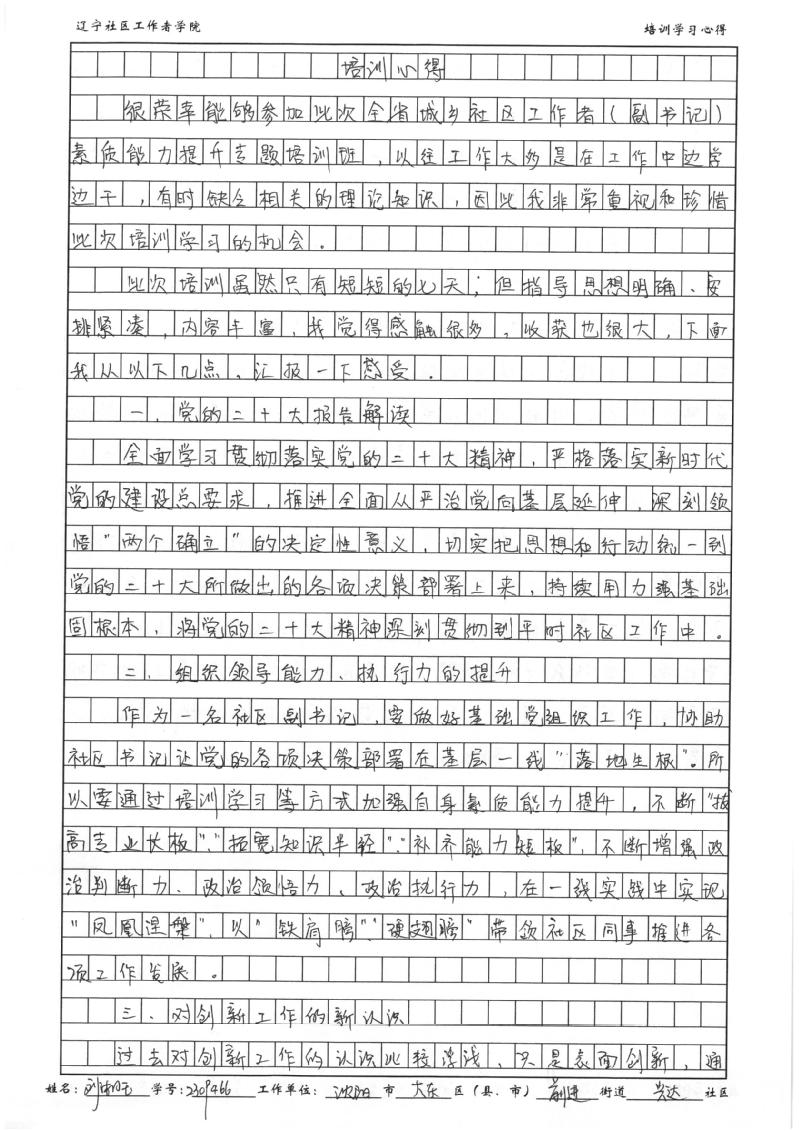 辽宁社区工作者学院 培训学习心得
培训心得
很荣幸能够参加此次全省城乡社区工作者(副书记)
素质能力提升专题培训班,以往工作大多是在工作中边学
边干,有时缺乏相关的理论知识,因此我非常重视和珍惜
此次培训学习的机会。
此次培训虽然只有短短的七天;但指导思想明确、安
排紧凑,内容丰富,我觉得感触很多,收获也很大,下面
我从以下几点,汇报一下感受.
一、党的二十大报告解读
全面学习贯彻落实党的二十大精神,严格落实新时代
党的建设总要求,推进全面从严治党向基层延伸,深刻领
悟"两个确立"的决定性意义,切实把思想和行动统一到
党的二十大所做出的各项决策部署上来,持续用力强基础
固根本,将党的二十大精神深刻贯彻到平时社区工作中。
二、组织领导能力、执行力的提升
作为一名社区副书记,要做好基础党组织工作,协助
社区书记让党的各项决策部署在基层一线"落地生根"。所
以要通过培训学习等方式加强自身素质能力提升,不断"拔
高专业长板"、"拓宽知识半径"、"补齐能力短板",不断增强政
治判断力、政治领悟力、政治执行力,在一线实战中实现
"凤凰涅槃",以"铁肩膀"、"硬翅膀"带领社区同事推进各
项工作发展。
三、对创新工作的新认识
过去对创新工作的认识比较浮浅,只是表面创新,通
姓名: 学号:2309466 工作单位: 沈阳 市 大东 区(县、市) 前进 街道 社区